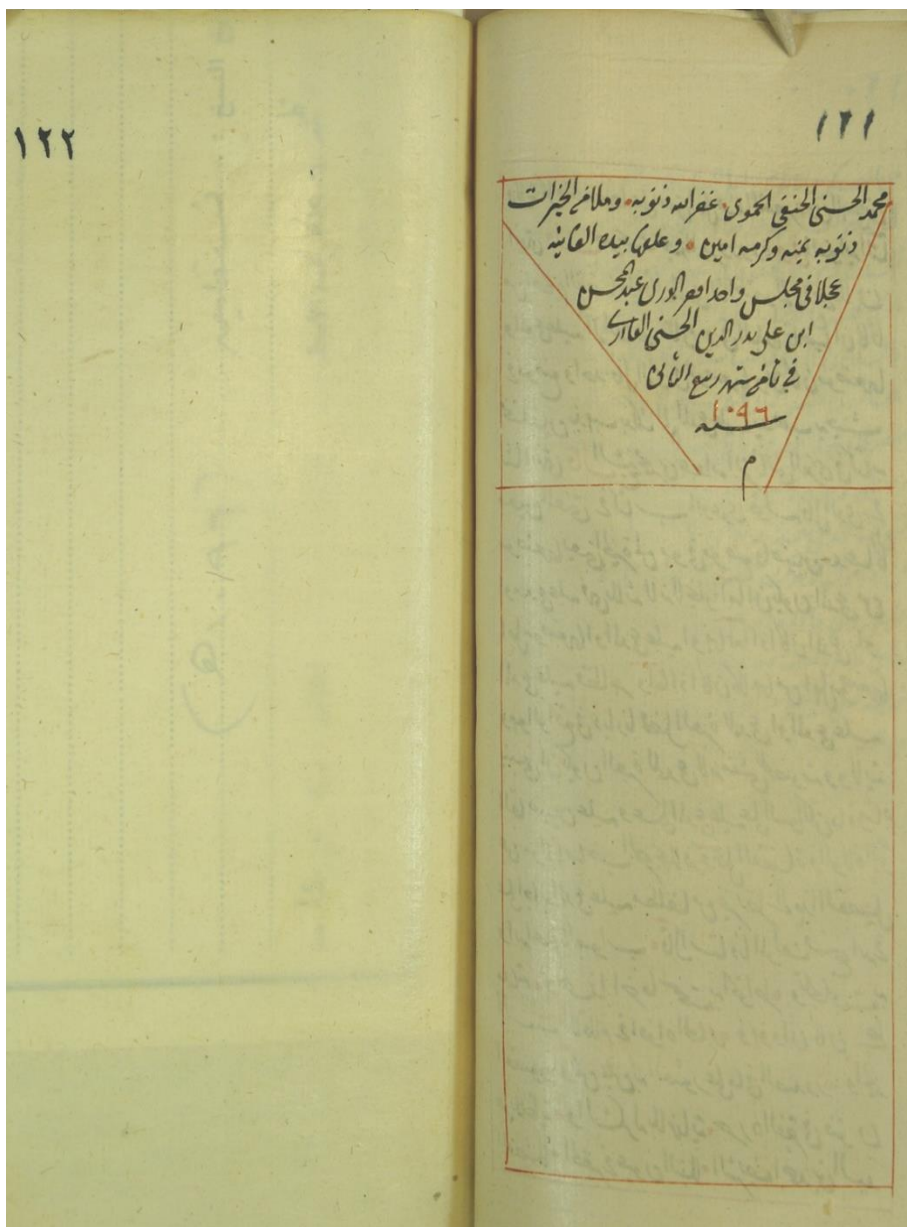 ١٢١
محمد الحسنى الحنفى الحموى غفر الله ذنوبه وملا من الخيرات
ذنوبه بمنه وكرمه امين وعلقها بيده الفانيه
عجلا فى مجلس واحد الورى عبد المحسن
ابن على بدر الدين الحسنى القادرى
في شهر ربيع الثانى
سنه ١٠٩٦
م
١٢٢